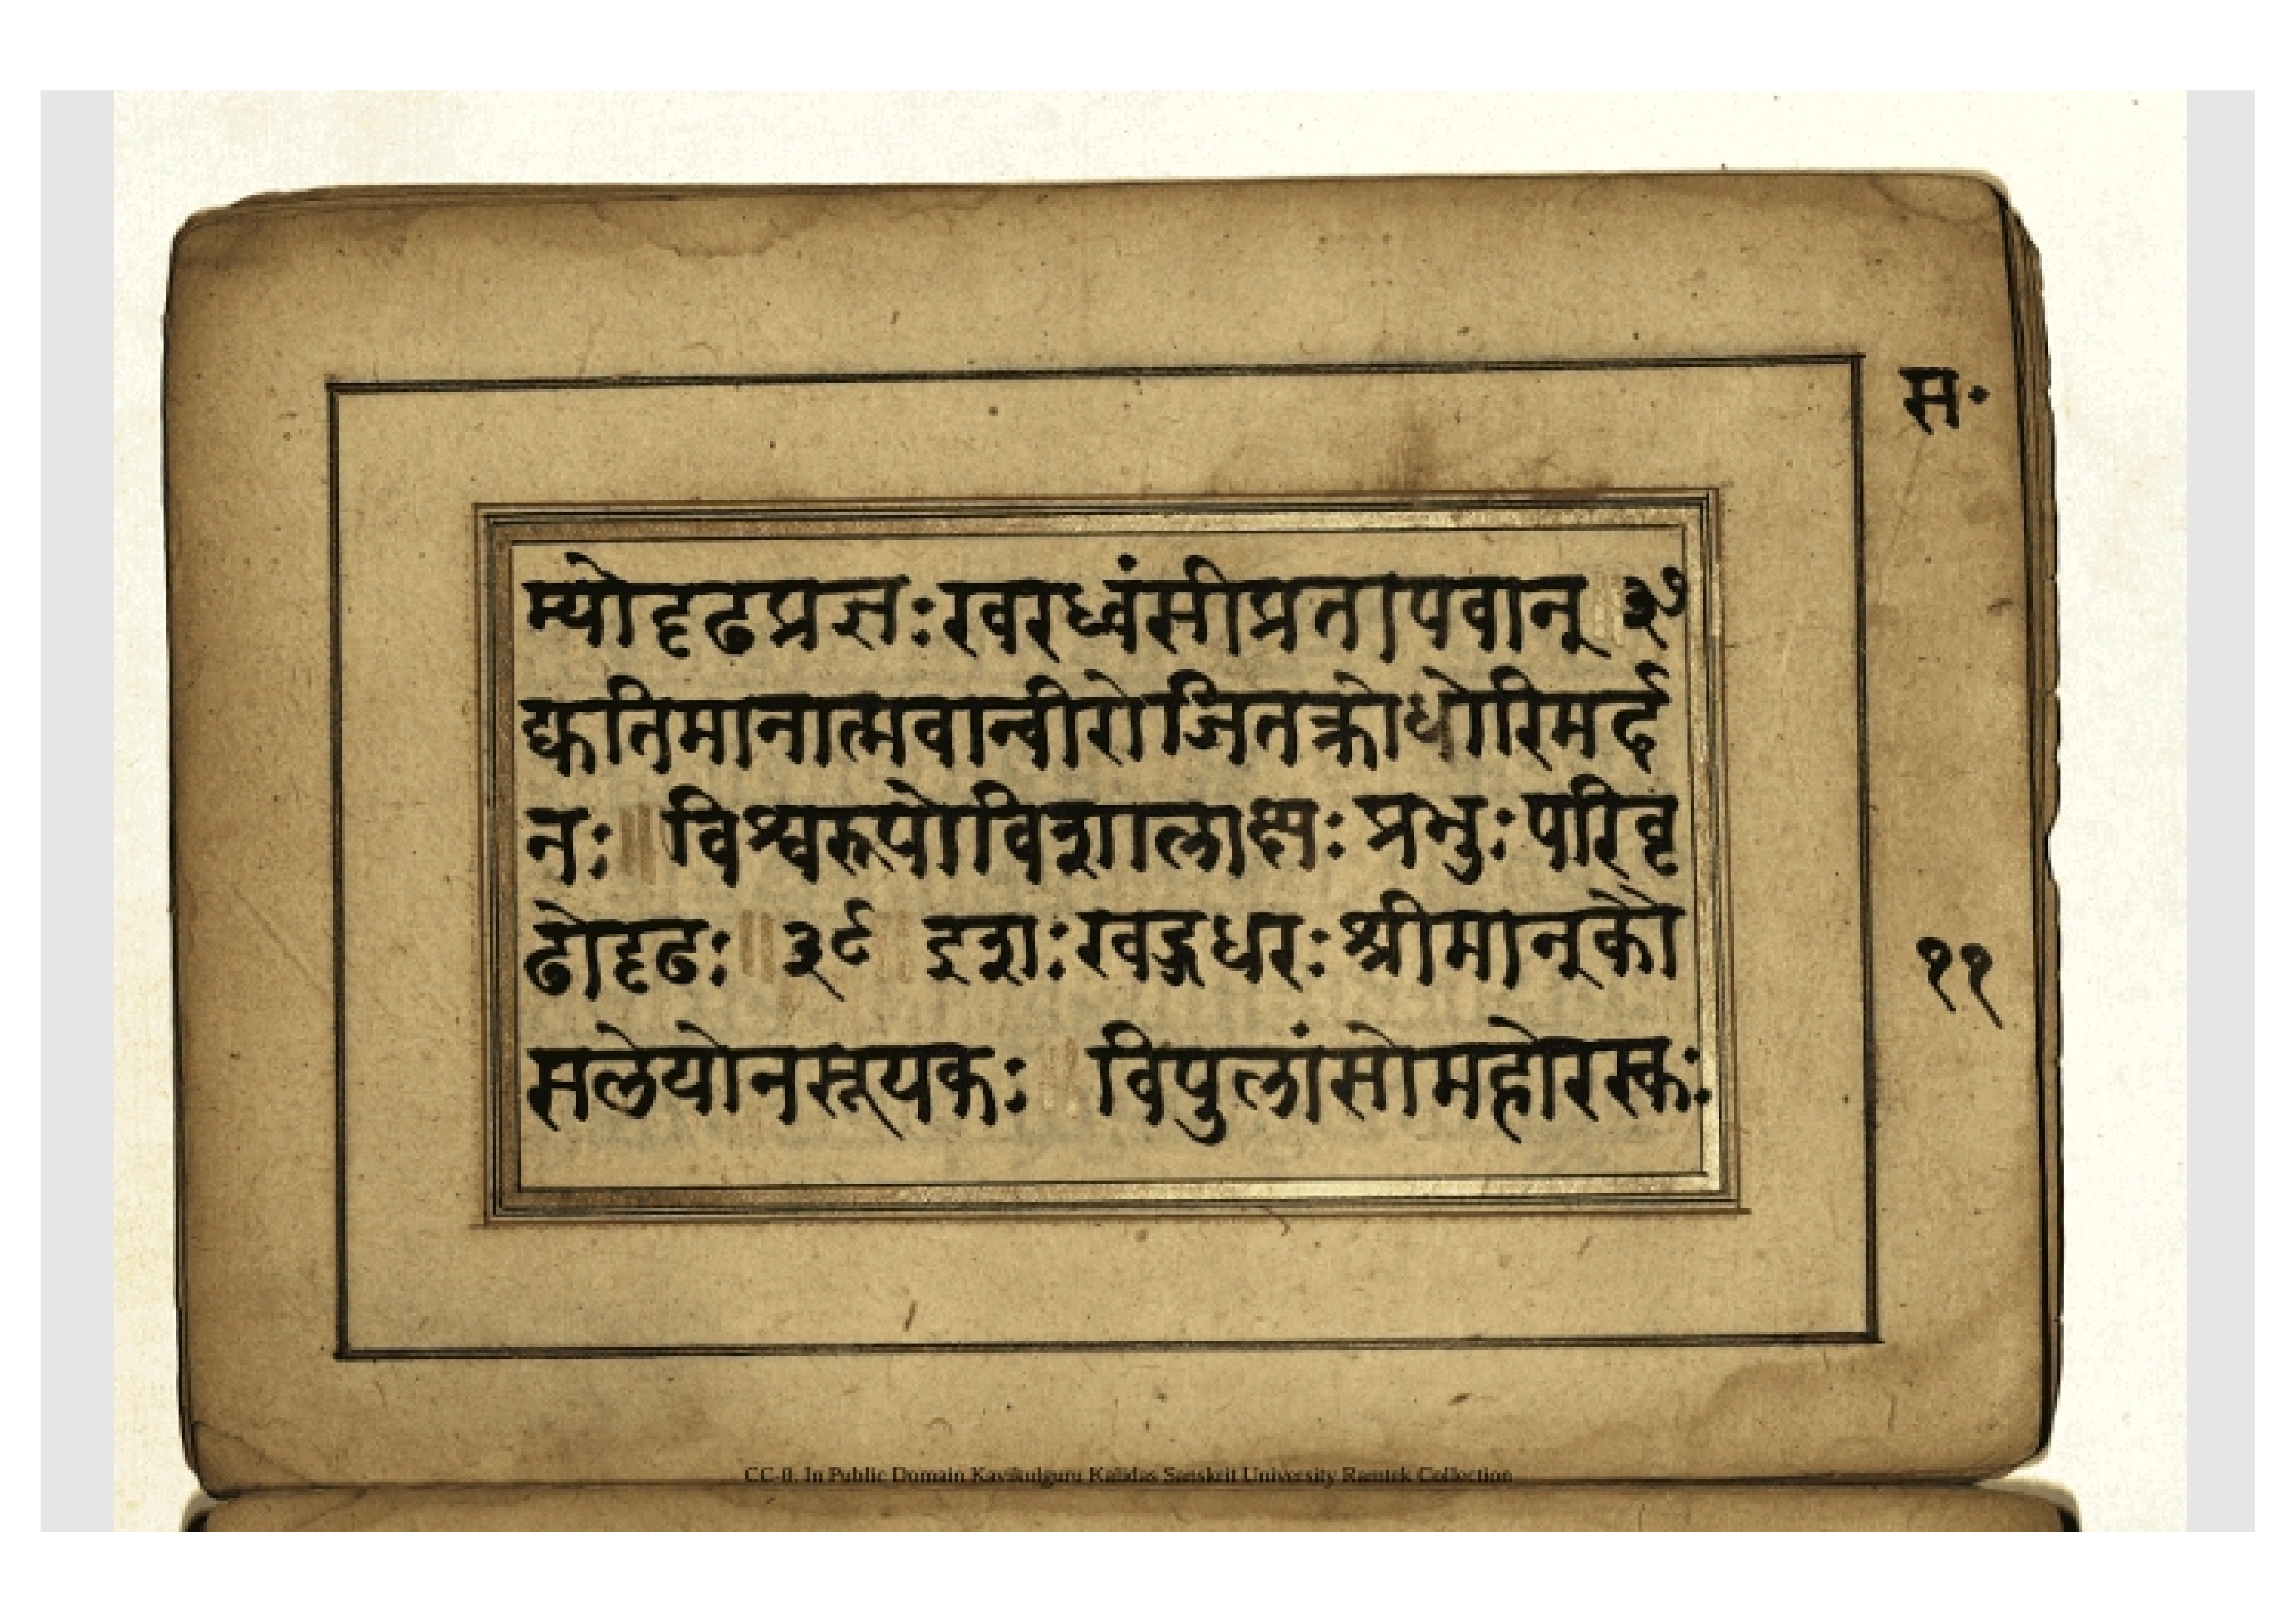 स॰
म्योदृढप्रज्ञःखरध्वंसीप्रतापवान् ॥ ३७
द्युतिमानात्मवान्वीरोजितक्रोधोरिमर्द
नः ॥ विश्वरूपोविशालाक्षःप्रभुःपरिवृ
ढोदृढः ॥ ३८ ॥ इशःखड्गधरःश्रीमान्कौ
सलेयोनसूयकः ॥ विपुलांसोमहोरस्कः
११
CC-0. In Public Domain Kavikulguru Kalidas Sanskrit University Ramtek Collection